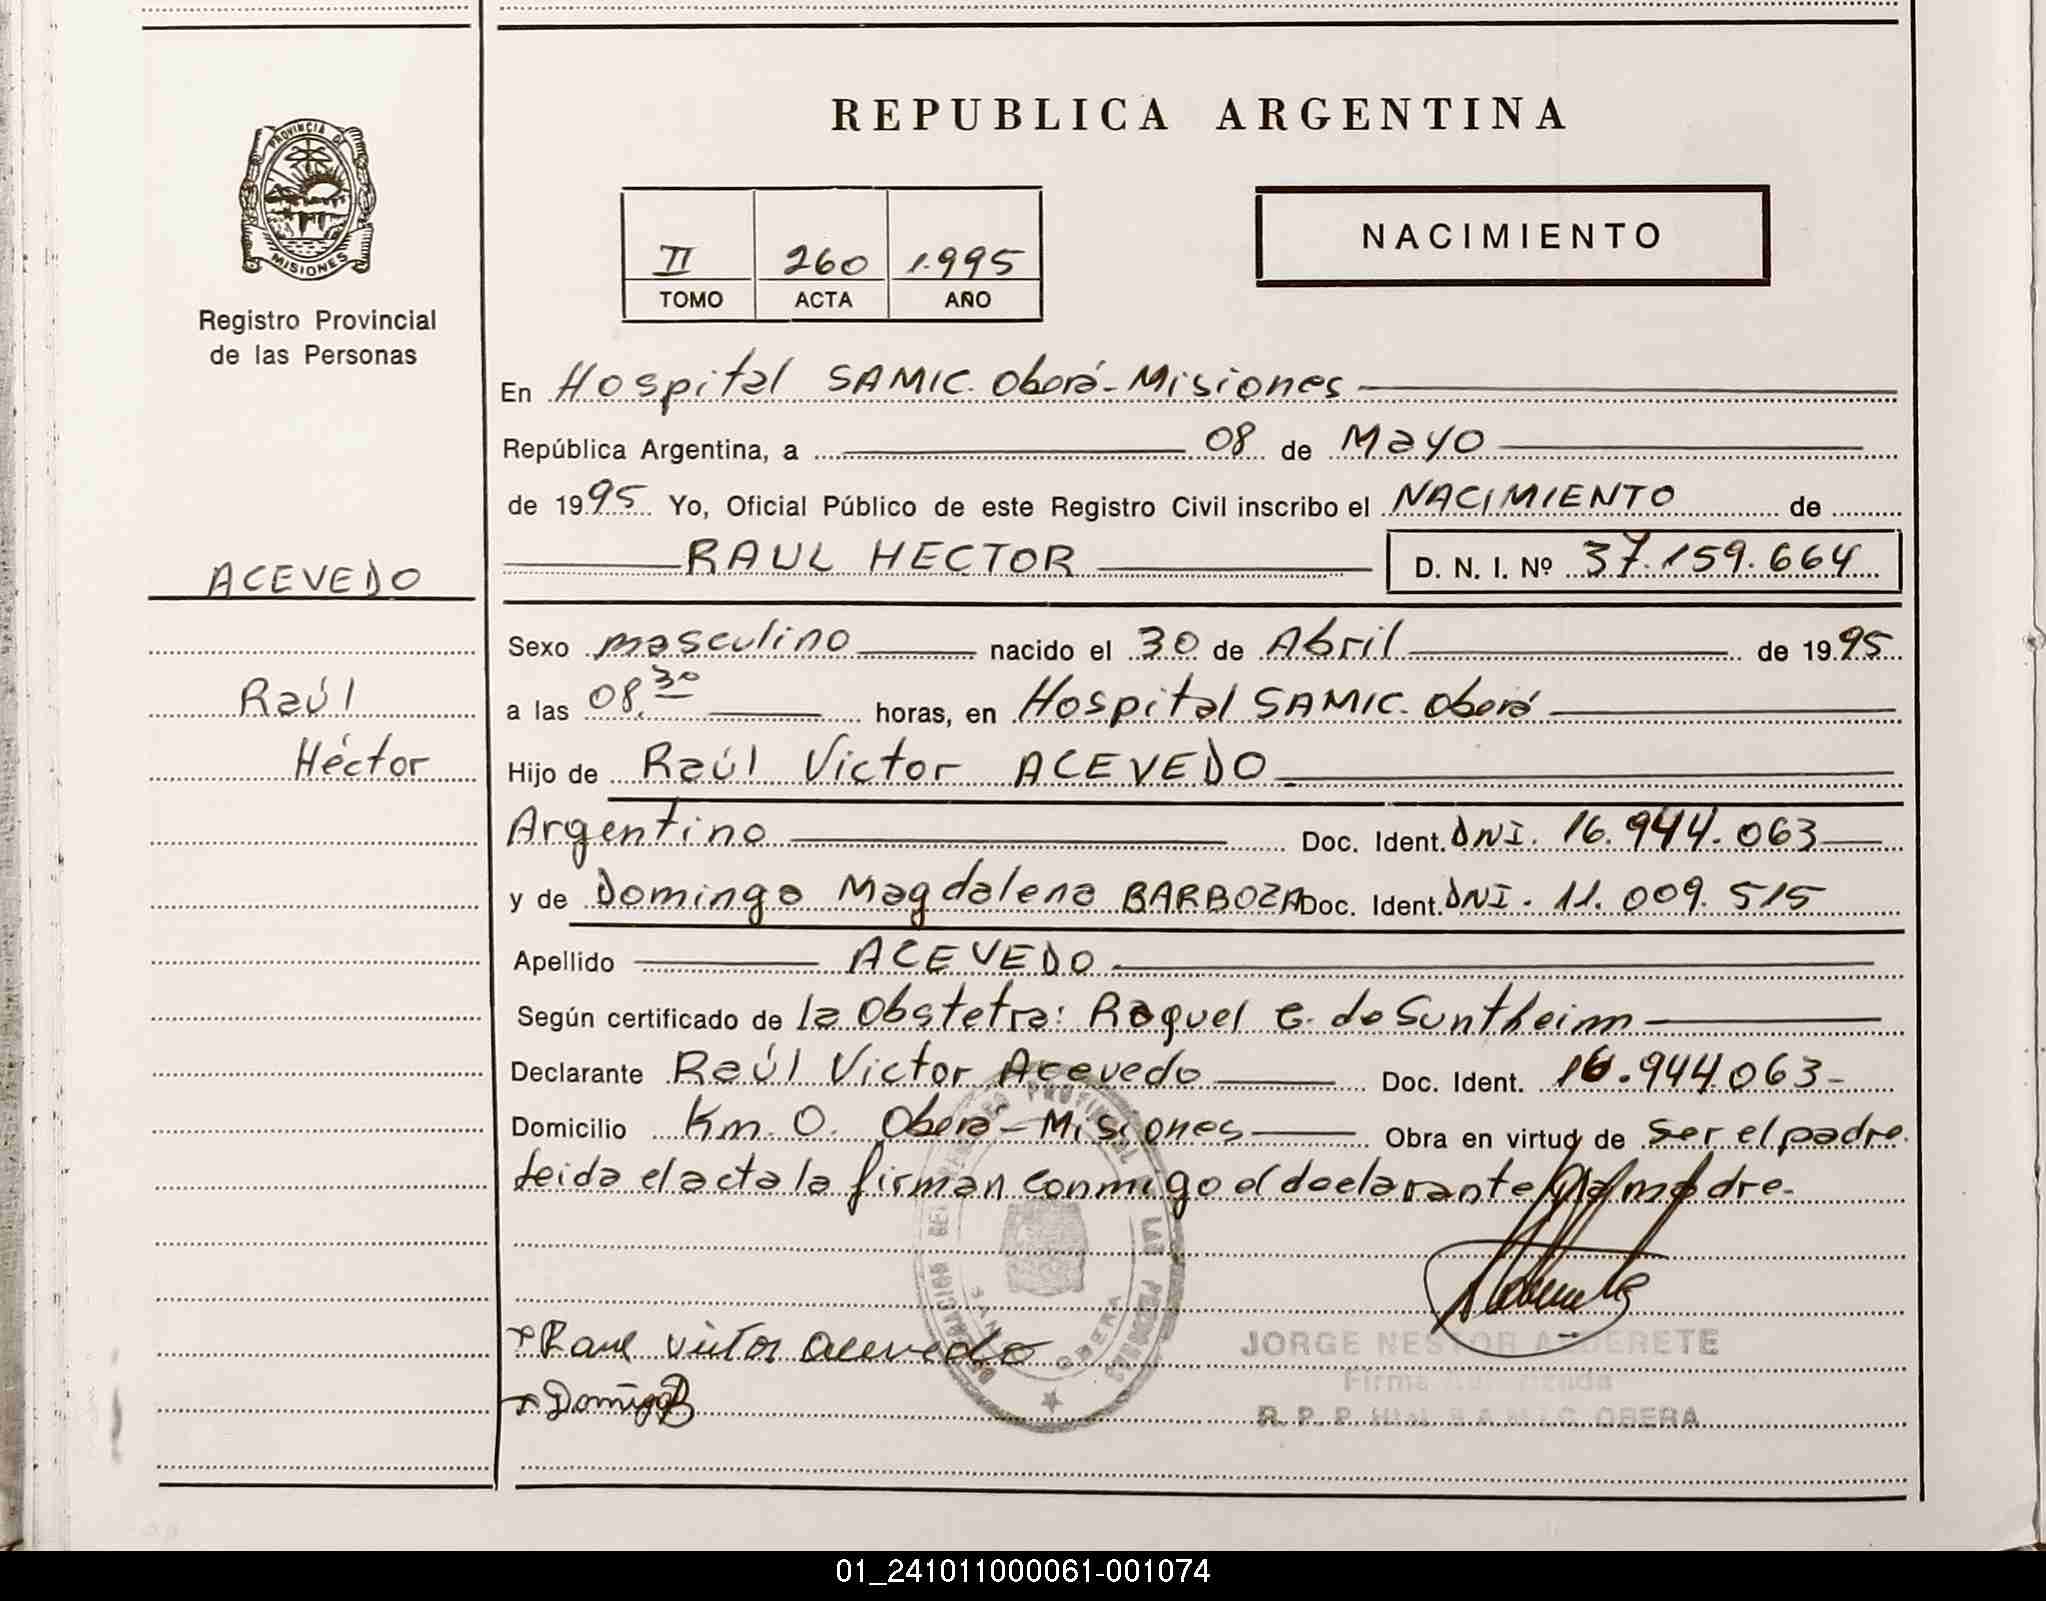 REPUBLICA ARGENTINA
PROVINCIA DE
MISIONES
Registro Provincial
de las Personas
II 260 1.995
TOMO ACTA AÑO
NACIMIENTO
En Hospital SAMIC. Oberá-Misiones
República Argentina, a 08 de Mayo
de 1995 Yo, Oficial Público de este Registro Civil inscribo el NACIMIENTO de
RAUL HECTOR D. N. I. Nº 37.159.664
ACEVEDO
Raúl
Héctor
Sexo masculino nacido el 30 de Abril de 1995
a las 08.30 horas, en Hospital SAMIC. Oberá
Hijo de Raúl Victor ACEVEDO
Argentino Doc. Ident. DNI. 16.944.063
y de Dominga Magdalena BARBOZA Doc. Ident. DNI. 11.009.515
Apellido ACEVEDO
Según certificado de la Obstetra: Raquel G. de Suntheim
Declarante Raúl Victor Acevedo Doc. Ident. 16.944.063-
Domicilio Km. 0. Oberá-Misiones Obra en virtud de ser el padre
leida el acta la firman conmigo el declarante madre-
Raul Victor Acevedo
JORGE NESTOR ALDERETE
Firma Autorizada
R. P. P. Htal. S.A.M.I.C. OBERA
01_241011000061-001074